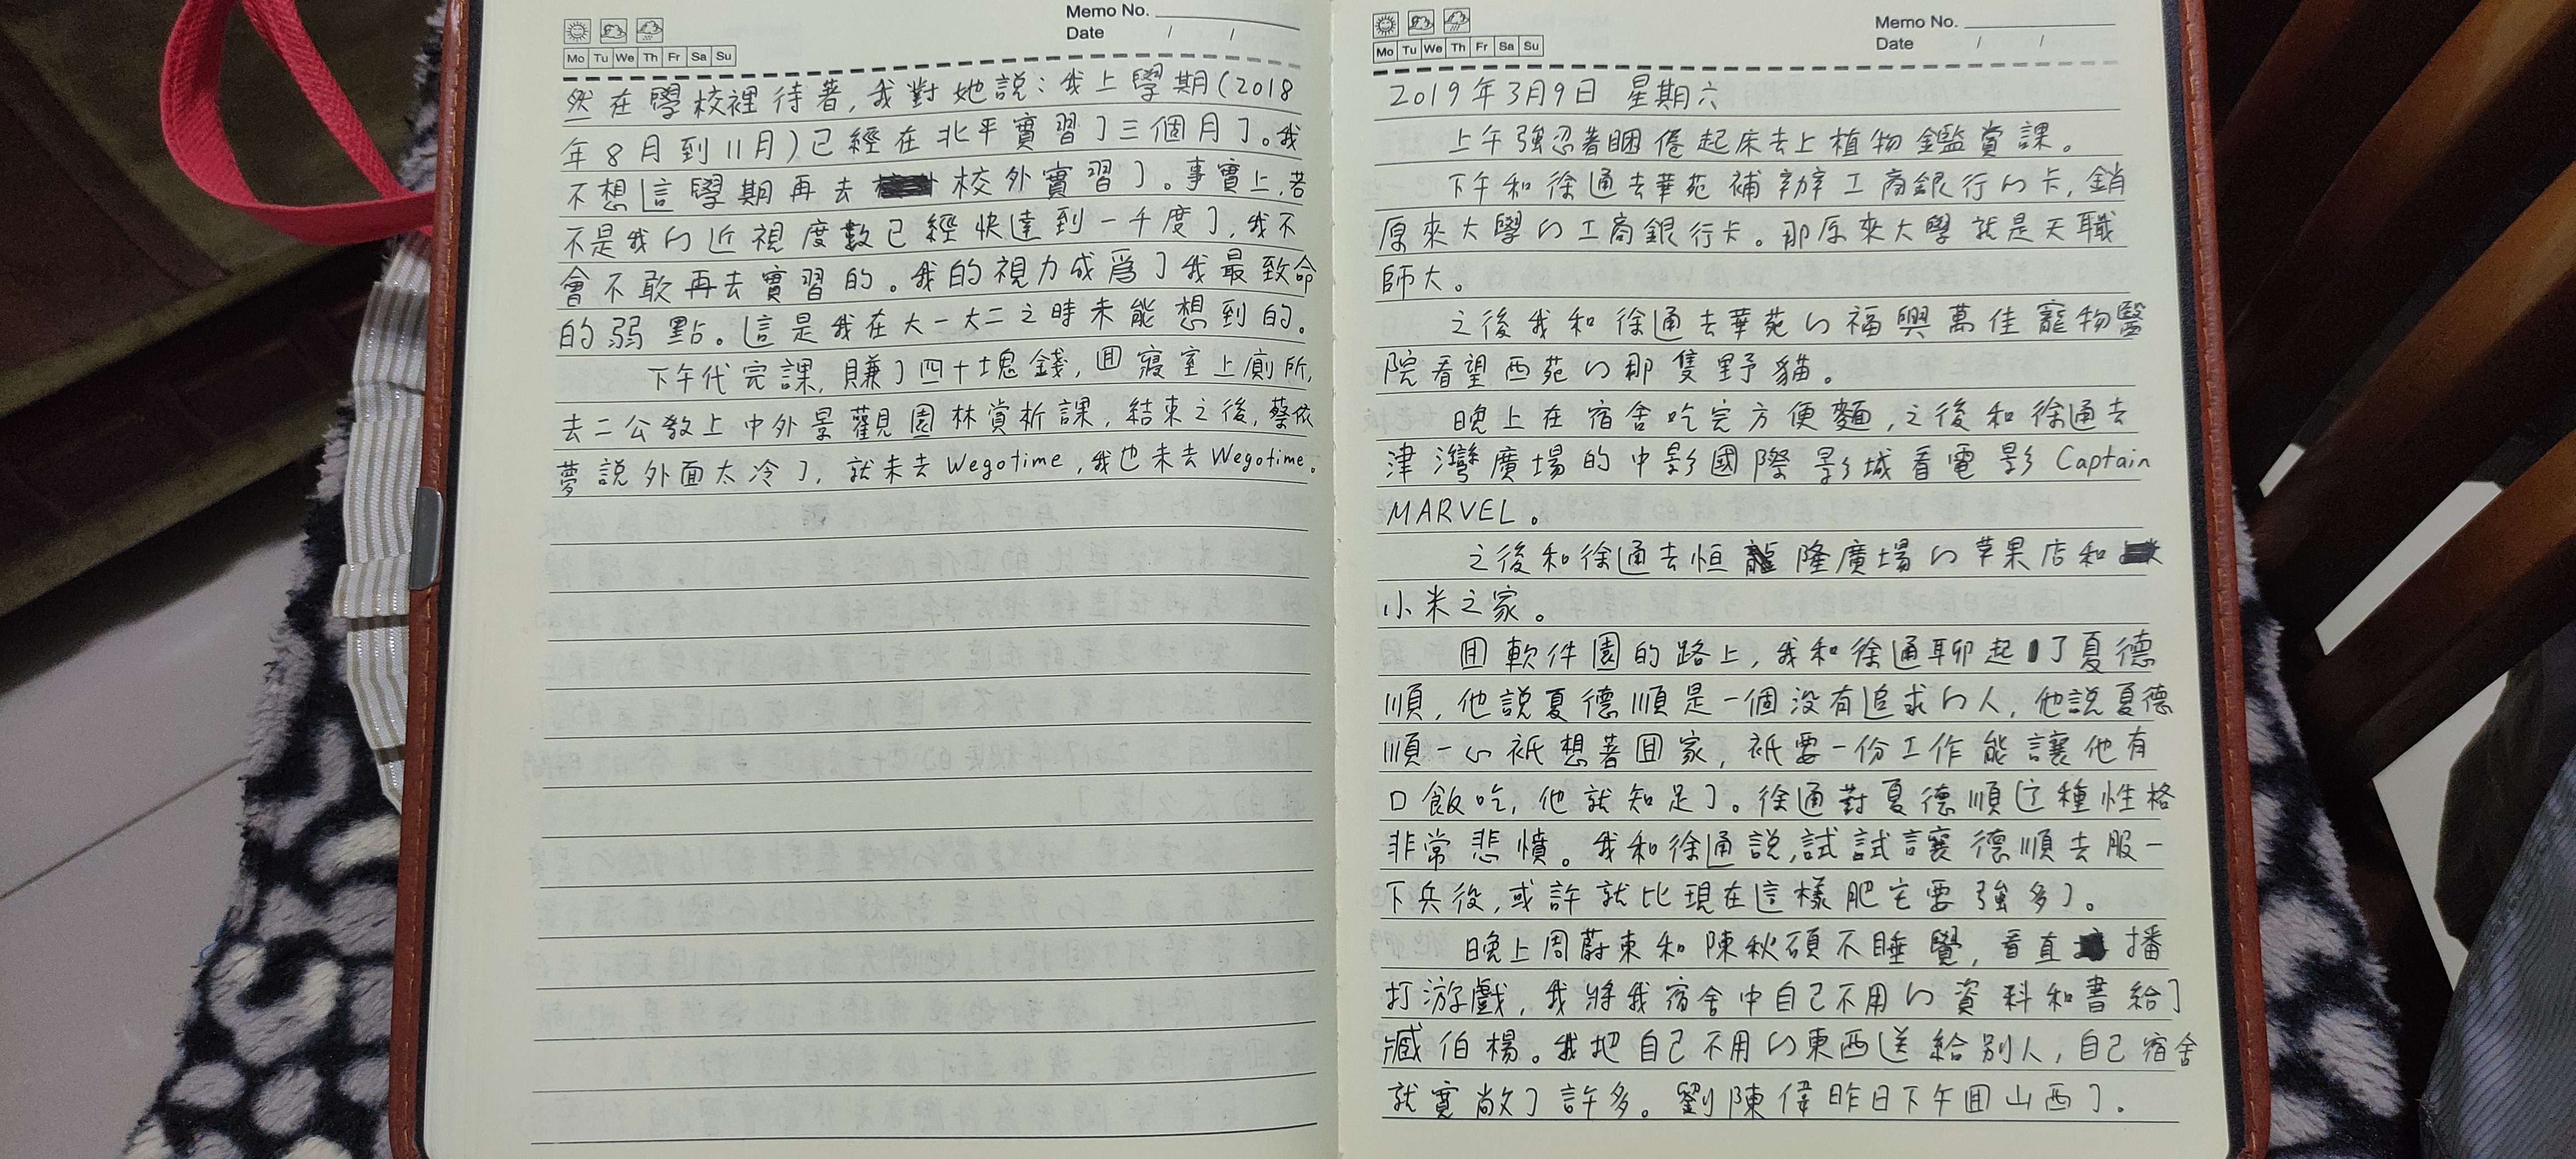 Memo No.
Date / /
Mo Tu We Th Fr Sa Su
然在學校裡待著,我對她説:我上學期(2018
年8月到11月)已經在北平實習了三個月了。我
不想這學期再去校外實習了。事實上,若
不是我的近視度數已經快達到一千度了,我不
會不敢再去實習的。我的視力成爲了我最致命
的弱點。這是我在大一大二之時未能想到的。
下午代完課,賺了四十塊錢,囬寢室上廁所,
去二公教上中外景觀園林賞析課,結束之後,蔡依
夢説外面太冷了,就未去Wegotime,我也未去Wegotime。
Memo No.
Date / /
Mo Tu We Th Fr Sa Su
2019年3月9日 星期六
上午強忍著睏倦起床去上植物鑑賞課。
下午和徐通去華苑補辦工商銀行的卡,銷
原來大學的工商銀行卡。那原來大學就是天職
師大。
之後我和徐通去華苑的福興萬佳寵物醫
院看望西苑的那隻野貓。
晚上在宿舍吃完方便麵,之後和徐通去
津灣廣場的中影國際影城看電影Captain
MARVEL。
之後和徐通去恒隆廣場的苹果店和
小米之家。
囬軟件園的路上,我和徐通聊起了夏德
順,他説夏德順是一個没有追求的人,他説夏德
順一心祇想著囬家,祇要一份工作能讓他有
口飯吃,他就知足了。徐通對夏德順這種性格
非常悲憤。我和徐通説,試試讓德順去服一
下兵役,或許就比現在這樣肥宅要強多了。
晚上周蔚東和陳秋碩不睡覺,看直播
打游戲,我將我宿舍中自己不用的資料和書給了
臧伯楊。我把自己不用的東西送給別人,自己宿舍
就寬敞了許多。劉陳偉昨日下午囬山西了。